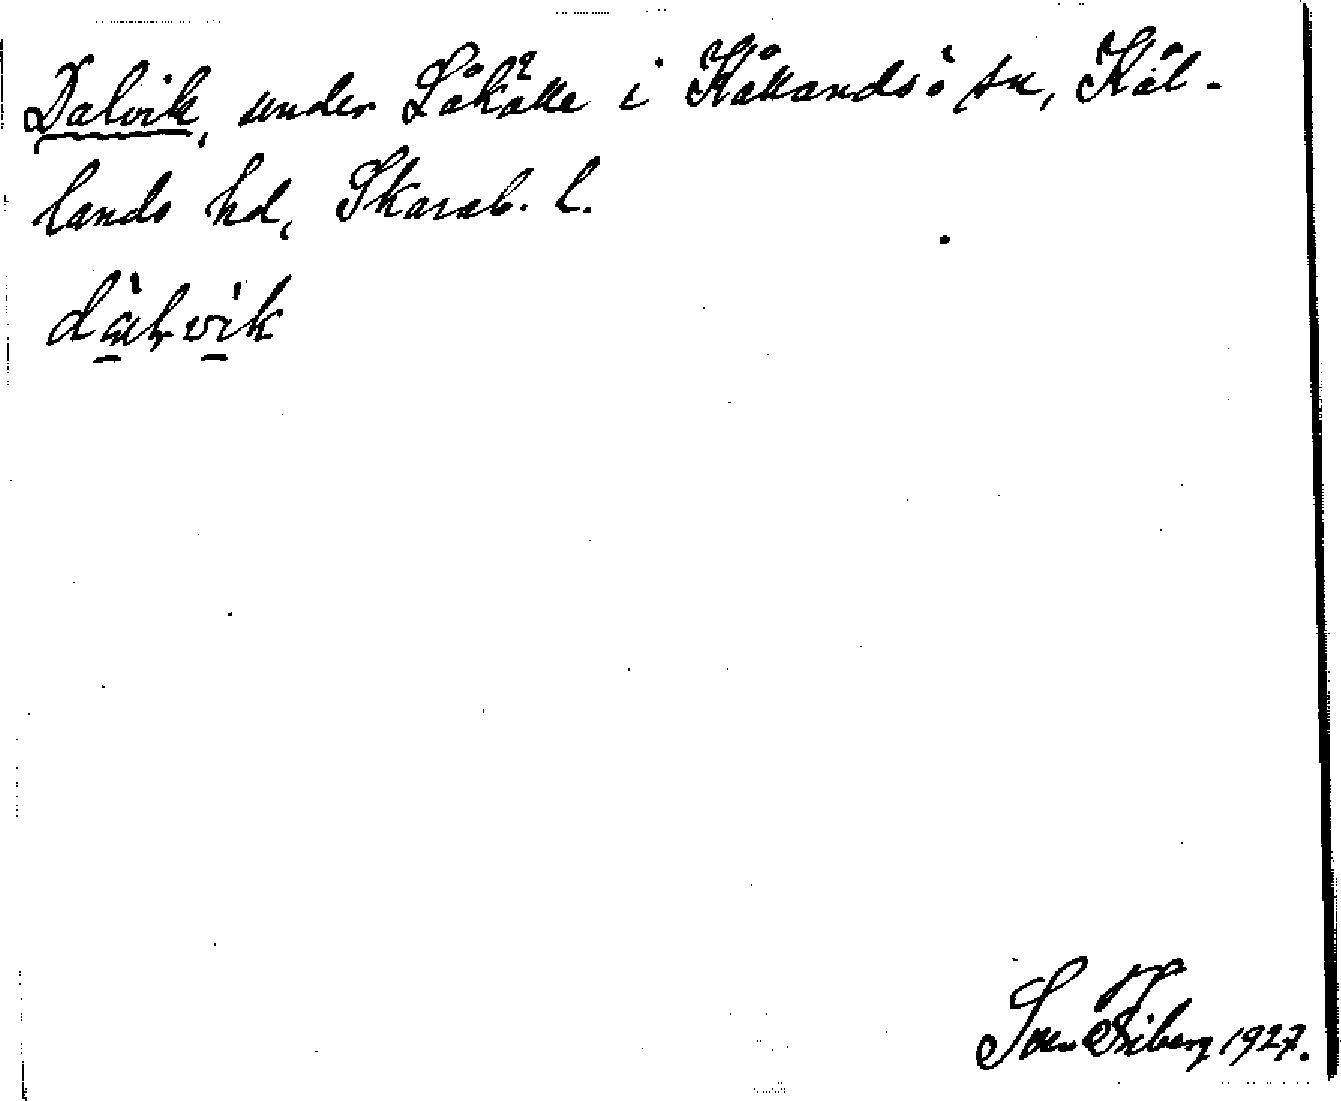 Dalvik, under Låkälle i Kållandsö sn, Kål-
lands hd, Skarab. l.
dàlvìk
Sven Fiberg 1927.